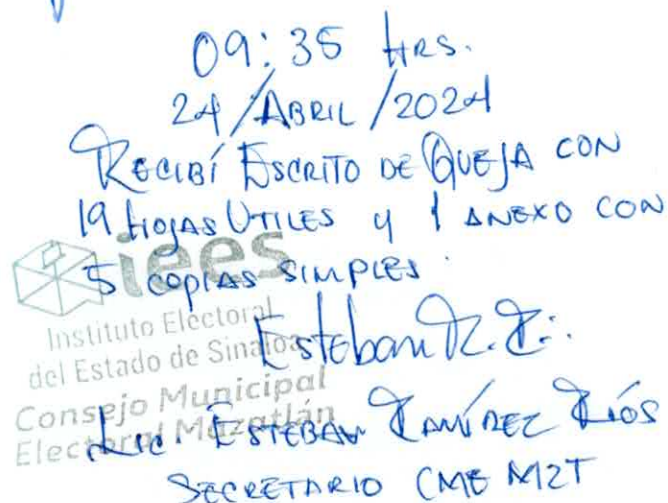 09:35 HRS.
24/ABRIL/2024
RECIBÍ ESCRITO DE QUEJA CON
19 HOJAS UTILES Y 1 ANEXO CON
5 COPIAS SIMPLES.
iees
Instituto Electoral
del Estado de Sinaloa
Consejo Municipal
Electoral Mazatlán
Esteban R. R.
Lic. ESTEBAN RAMÍREZ RÍOS
SECRETARIO CME MZT